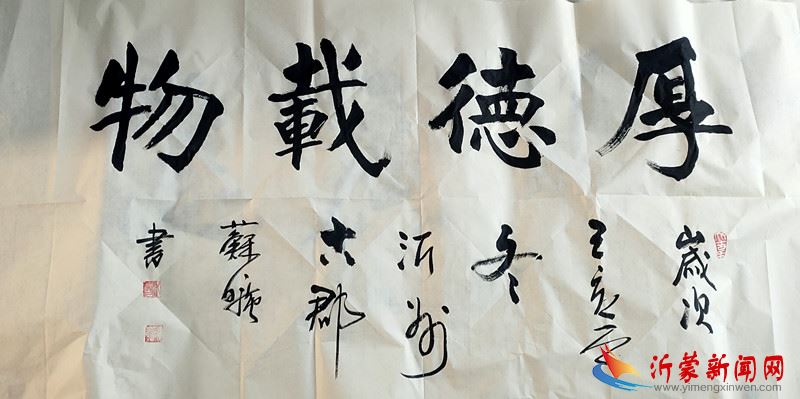 厚德載物
歲次
冬
沂州
古郡
蘇
書
沂蒙新闻网
www.yimengxinwen.com